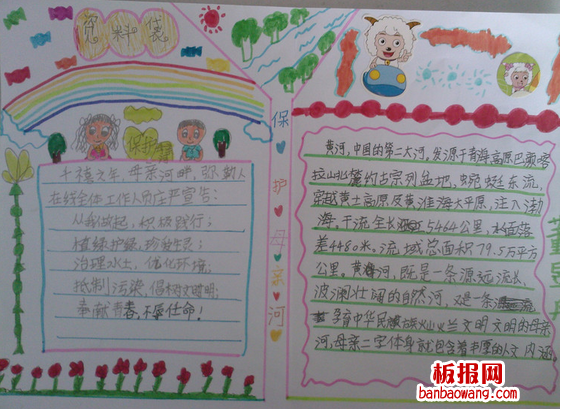 资料袋
保护
千禧之年,母亲河畔,
在线全体工作人员庄严宣告:
从我做起,积极践行;
植绿护绿,珍
治理水土,优化环境;
抵制污染,倡树文明;
奉献青春,不辱使命!
保护母亲河
黄河,中国的第二大河,发源于青海高原巴颜喀
拉山北麓约古宗列盆地,蜿蜒东流,
穿越黄土高原及黄淮海大平原,注入渤
海。干流全长5464公里,水面落
差4480米。流域总面积79.5万平方
公里。黄河,既是一条源远流长、
波澜壮阔的自然河,又是一条
孕育中华民族灿烂文明的母亲
河,母亲二字本身就包含着丰厚的人文内涵
板报网
www.banbaowang.com